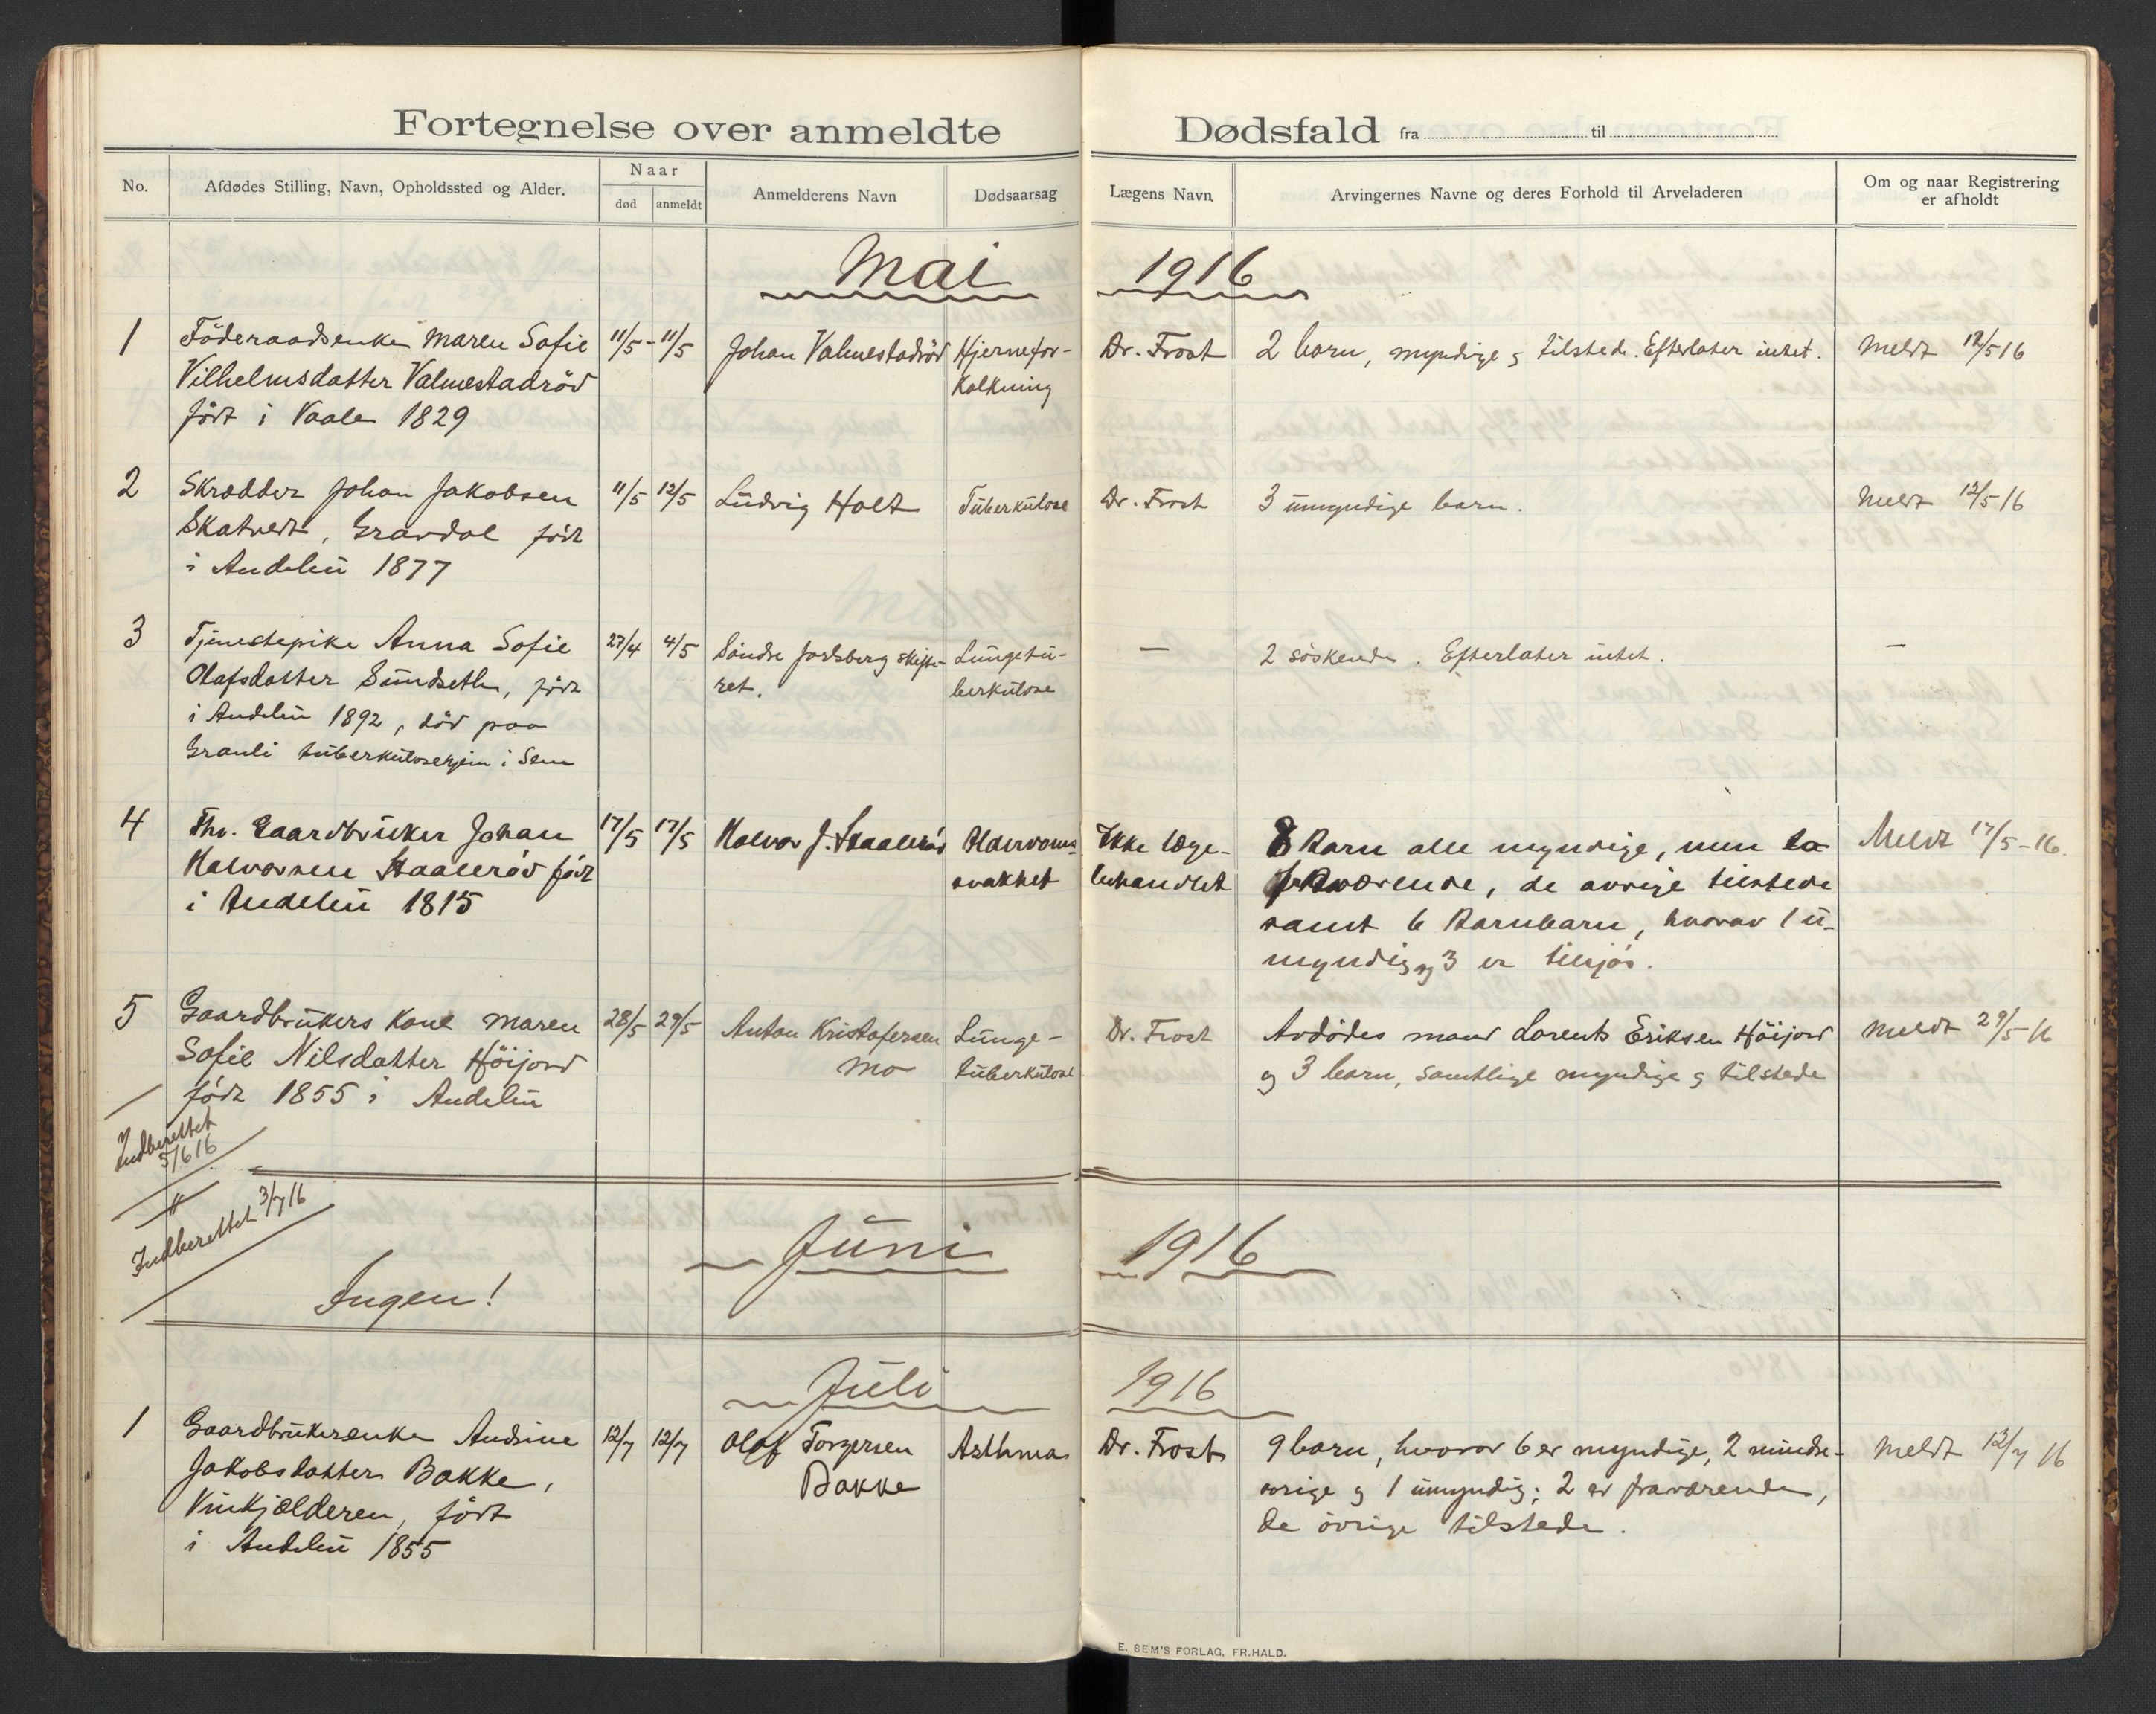 Fortegnelse over anmeldte Dødsfald fra til
No.
Afdødes Stilling, Navn, Opholdssted og Alder.
Naar
død
anmeldt
Anmelderens Navn
Dødsaarsag
Lægens Navn
Arvingernes Navne og deres Forhold til Arveladeren
Om og naar Registrering
er afholdt
Mai 1916
1
Föderaadsenke Maren Sofie
Vilhelmsdatter Valmestadröd
född i Vaale 1829
11/5 - 11/5
Johan Valmestadröd
Hjernefor-
kalkning
Dr. Frost
2 barn, myndige og tilstede. Efterlater intet.
Meldt 12/5 16
2
Skrædder Johan Jakobsen
Skatvedt, Gravdal född
i Andebu 1877
11/5 12/5
Ludvig Holt
Tuberkulose
Dr. Frost
3 umyndige barn.
Meldt 12/5 16
3
Tjenestepike Anna Sofie
Olafsdatter Sundseth, född
i Andebu 1892, död paa
Granli tuberkulosehjem i Sem
27/4 4/5
Söndre Jarlsberg skifte-
ret.
Lungetu-
berkulose
—
2 söskende. Efterlater intet.
—
4
Fhv. Gaardbruker Johan
Halvorsen Staalerød född
i Andebu 1815
17/5 17/5
Halvor J. Staalerød
Alderdoms-
svakhet
Ikke læge-
behandlet
8 Barn alle myndige, men to
fraværende, de øvrige tilstede
samt 6 Barnebarn, hvorav 1 u-
myndig og 3 er tilsjøs.
Meldt 17/5-16.
5
Gaardbrukers kone Maren
Sofie Nilsdatter Höijord
född 1855 i Andebu
28/5 29/5
Anton Kristofersen
Mo
Lunge-
tuberkulose
Dr. Frost
Avdödes mand Lorents Eriksen Höijord
og 3 barn, samtlige myndige og tilstede
Meldt 29/5 16
Indberettet
5/6 16
Indberettet 3/7 16
Juni 1916
Ingen!
Juli 1916
1
Gaardbrukerenke Andrine
Jakobsdatter Bakke,
Vinkjælderen, född
i Andebu 1855
12/7 12/7
Olaf Torgersen
Bakke
Asthma
Dr. Frost
9 barn, hvorav 6 er myndige, 2 mindre-
aarige og 1 umyndig; 2 er fraværende,
de övrige tilstede.
Meldt 12/7 16
E. SEM'S FORLAG, FR.HALD.